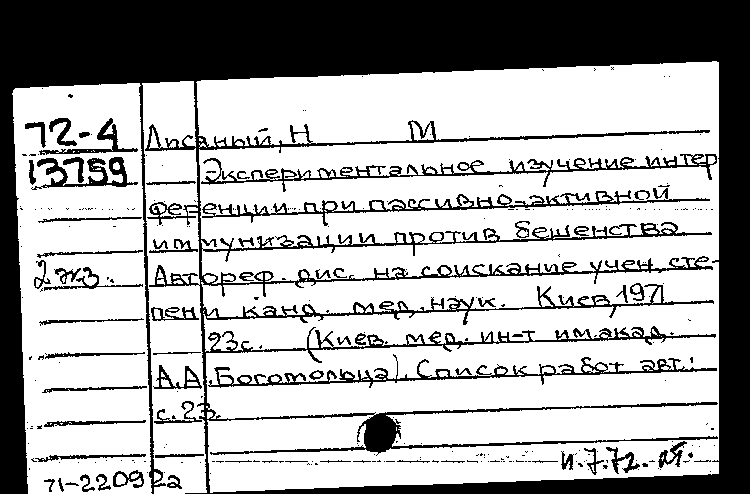 72-4 Лисаный, Н М
13759 Экспериментальное изучение интер
ференции при пассивно-активной
иммунизации против бешенства
2 экз. Автореф. дис. на соискание учен. сте-
пени канд. мед. наук. Киев, 1971
23с. (Киев. мед. ин-т им. акад.
А.А. Богомольца). Список работ авт.:
с. 23.
71-22092а